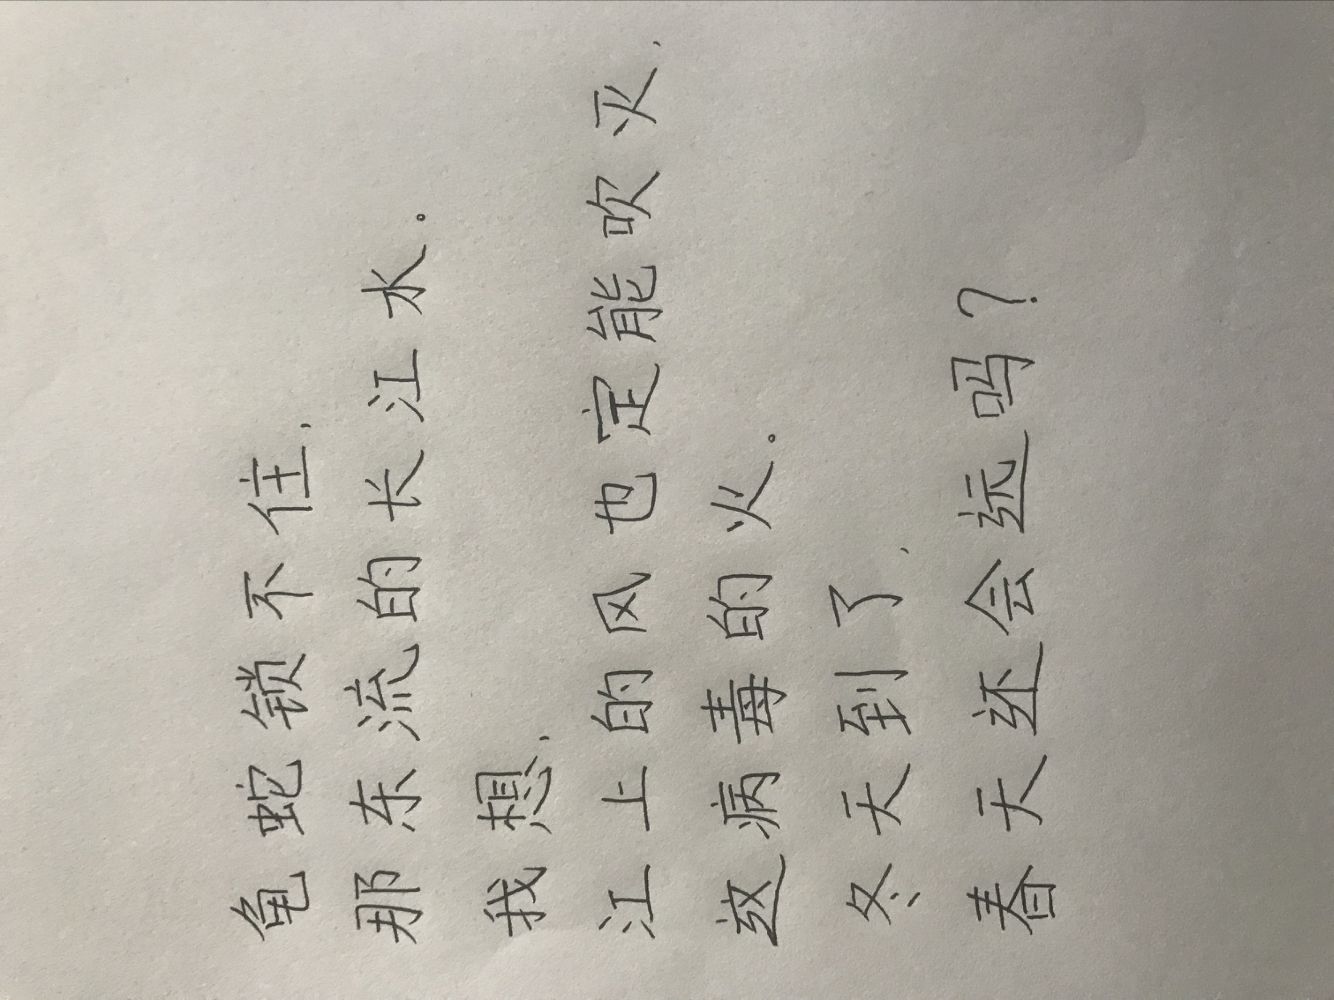 龟蛇锁不住,
那东流的长江水。
我想,
江上的风也定能吹灭,
这病毒的火。
冬天到了,
春天还会远吗?